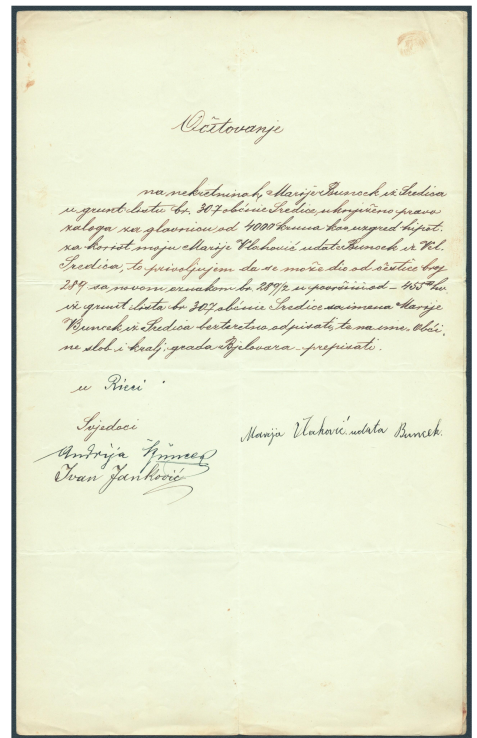 Očitovanje
na nekretninah, Marije Buncek iz Sredica
u grunt listu br. 307 občine Sredice, uknjiženo pravo
zaloga za glavnicu od 4000 kruna kao uzgred. hipot.
za korist moju Marije Vlahović udate Buncek iz Vel.
Sredica, to privoljujem da se može dio od čestice broj
289 sa novom oznakom br. 289/2 u površini od – 455 hv
iz grunt. lista br. 307, občine Sredice sa imena Marije
Buncek iz Sredica bezteretno odpisati, te na ime, Obći,
ne slob. i kralj. grada Bjelovara prepisati.
u
Svjedoci
Marija Vlahović udata Buncek.
Andrija
Ivan Janković